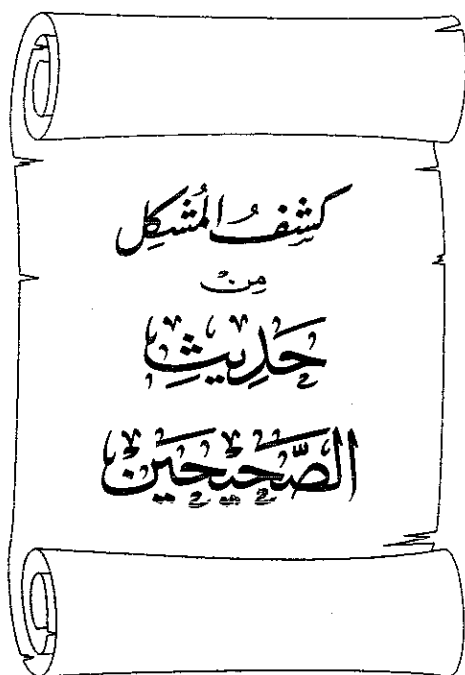 كشفُ المُشكِل
مِنْ
حَدِيثِ
الصَّحِيحَيْن